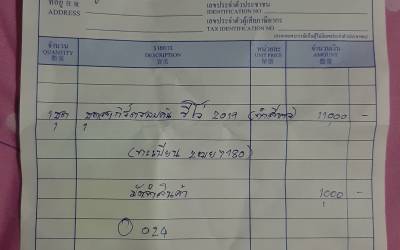 ที่อยู่
ADDRESS
เลขประจำตัวประชาชน
IDENTIFICATION NO.
เลขประจำตัวผู้เสียภาษีอากร
TAX IDENTIFICATION NO.
จำนวน รายการ หน่วยละ จำนวนเงิน
QUANTITY DESCRIPTION UNIT PRICE AMOUNT
數量 貨名 單價 銀額
1 ชุด รีโว่ 2019 11,000 -
(ทะเบียน 7180)
มัดจำสินค้า 1000 -
024